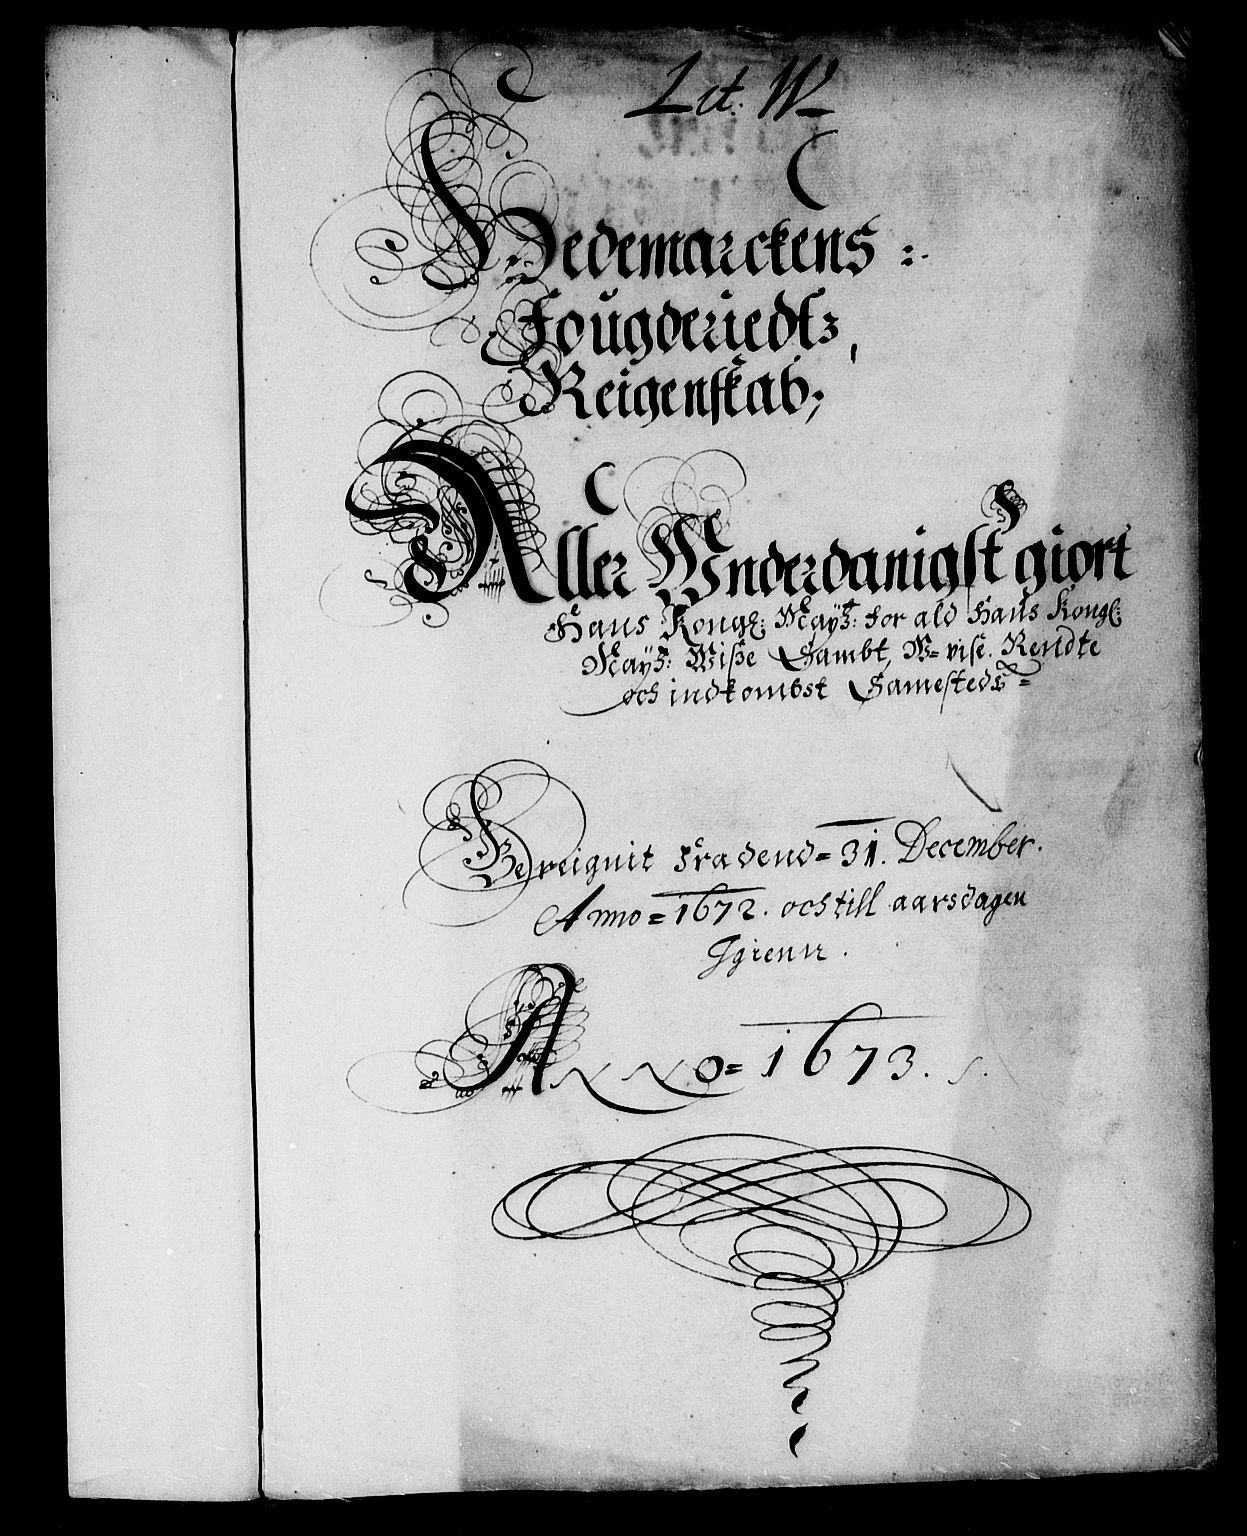 Lit: W
Hedemarckens :.
Fougderiedtz
Reigenskab;
Aller Wnderdanigst giort
Hans Kongl: Mayt: for ald Hans Kongl:
Mayt: Wiße Sambt, W= vise. Rendte
och indkombst Samesteds =
Bereignit fra dend= 31. December.
Anno = 1672. och till aarsdagen
Igienn .
Anno= 1673.